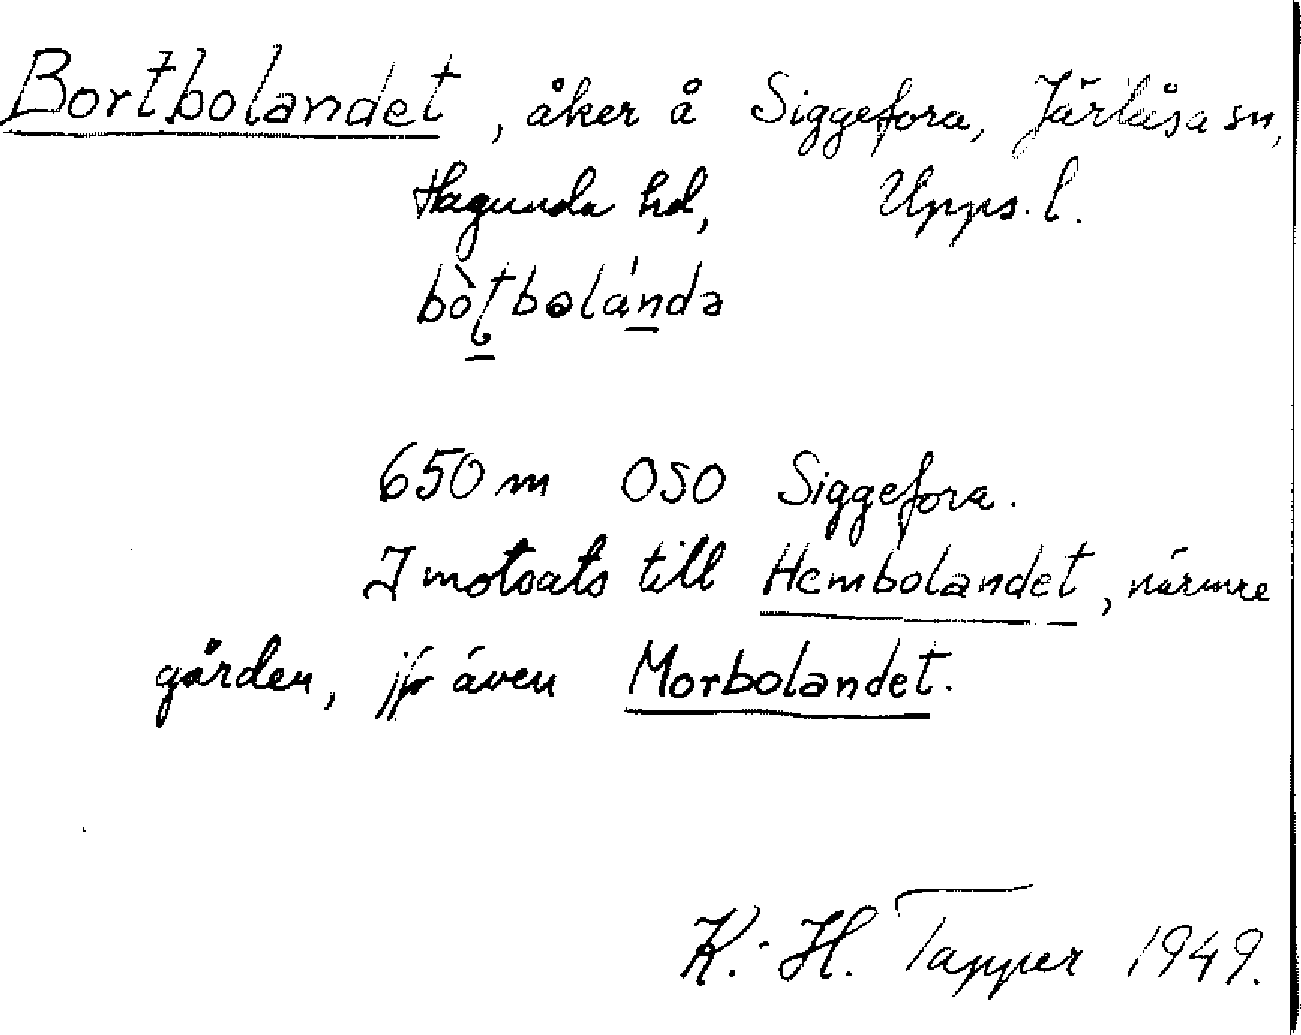 Bortbolandet, åker å Siggefora, Järlåsa sn,
Hagunda hd, Upps. l.
bòʈbəlándə
650 m OSO Siggefora.
I motsats till Hembolandet, närmre
gården, jfr även Morbolandet.
K.-H. Tapper 1949.